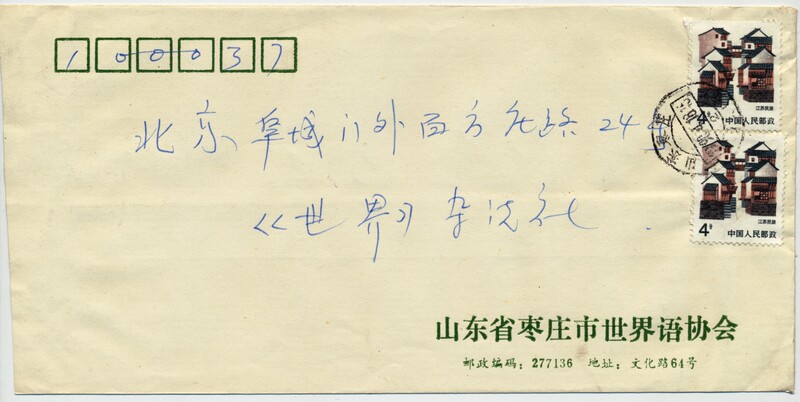 100037
北京阜城门外百万庄路24号
《世界》杂志社
江苏民居
4分 中国人民邮政
江苏民居
4分 中国人民邮政
山东 枣庄
山东省枣庄市世界语协会
邮政编码：277136 地址：文化路64号